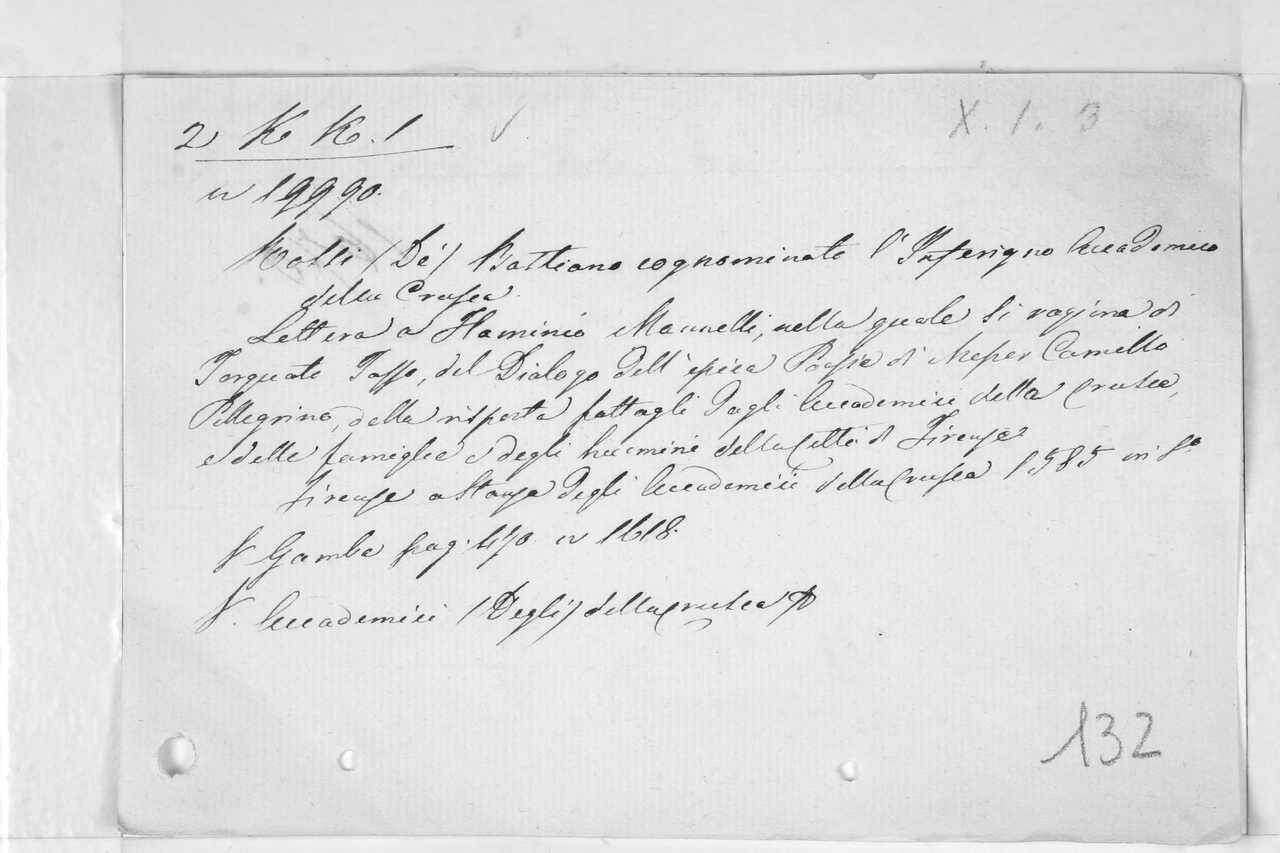 2 K K. 1
X. 1. 3
n 19990.
Rossi (De') Bastiano cognominato l'Inferigno Accademico
della Crusca
Lettera a Flaminio Mannelli, nella quale si ragiona di
Torquato Tasso, del Dialogo dell'epica Poesia di Messer Camillo
Pellegrino, della risposta fattagli dagli Accademici della Crusca,
e delle famiglie e degli huomini della Città di Firenze
Firenze a stanza degli Accademici della Crusca 1585 in 8°
V Gamba pag. 470. n 1618.
V. Accademici (Degli) della Crusca
132